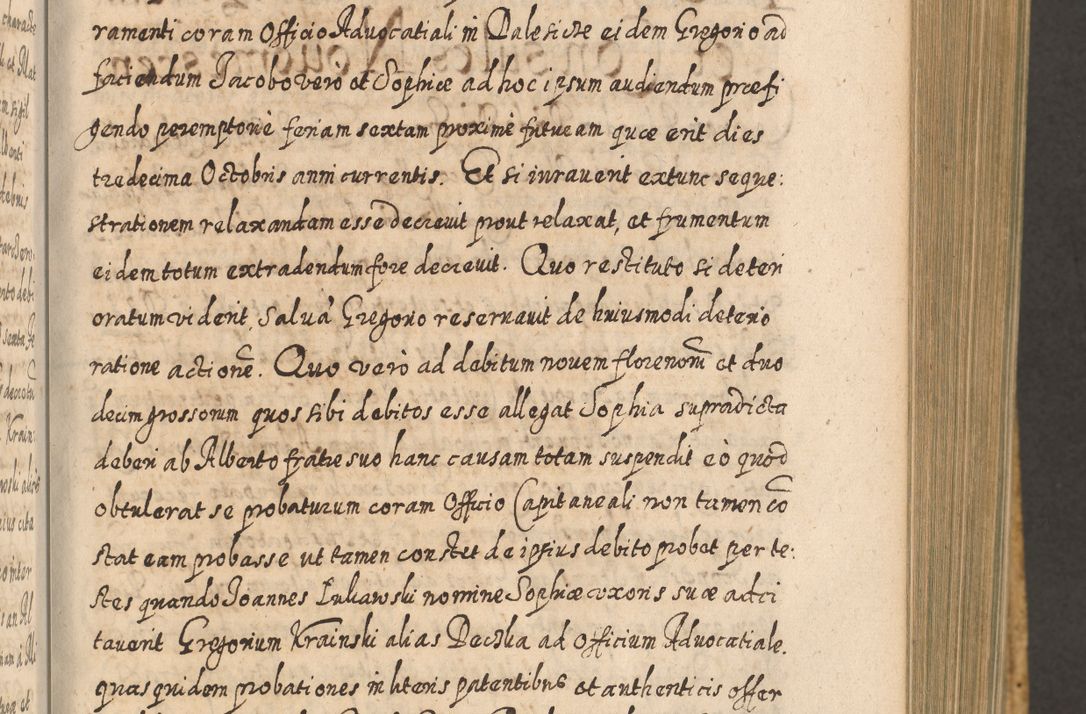 ramenti coram Officio Advocatiali in Dalesicze eidem Gregorio ad
faciendum Jacobo vero et Sophiæ ad hoc ipsum audiendum præfi
gendo peremptoriè feriam sextam proximè futuram quæ erit dies
tredecima Octobris anni currentis. Et si iuraverit extunc seque:
strationem relaxandam esse decrevit prout relaxat, et frumentum
eidem totum extradendum fore decrevit. Quo restituto si deteri
oratum viderit, salvâ Gregorio reservavit de huiusmodi deterio
ratione actionē. Quo verò ad debitum novem florenorū et duo
decim grossorum quos sibi debitos esse allegat Sophia supradicta
deberi ab Alberto fratre suo hanc causam totam suspendit eò quod
obtulerat se probaturum coram Officio Capitaneali non tamen cō
stat eam probasse ut tamen constet de ipsius debito probet per te:
stes quando Joannes Lukawski nomine Sophiæ uxoris suæ adci
taverit Gregorium Krainski alias Deczka ad Officium Advocatiale.
quas quidem probationes in literis patentibus et authenticis offer